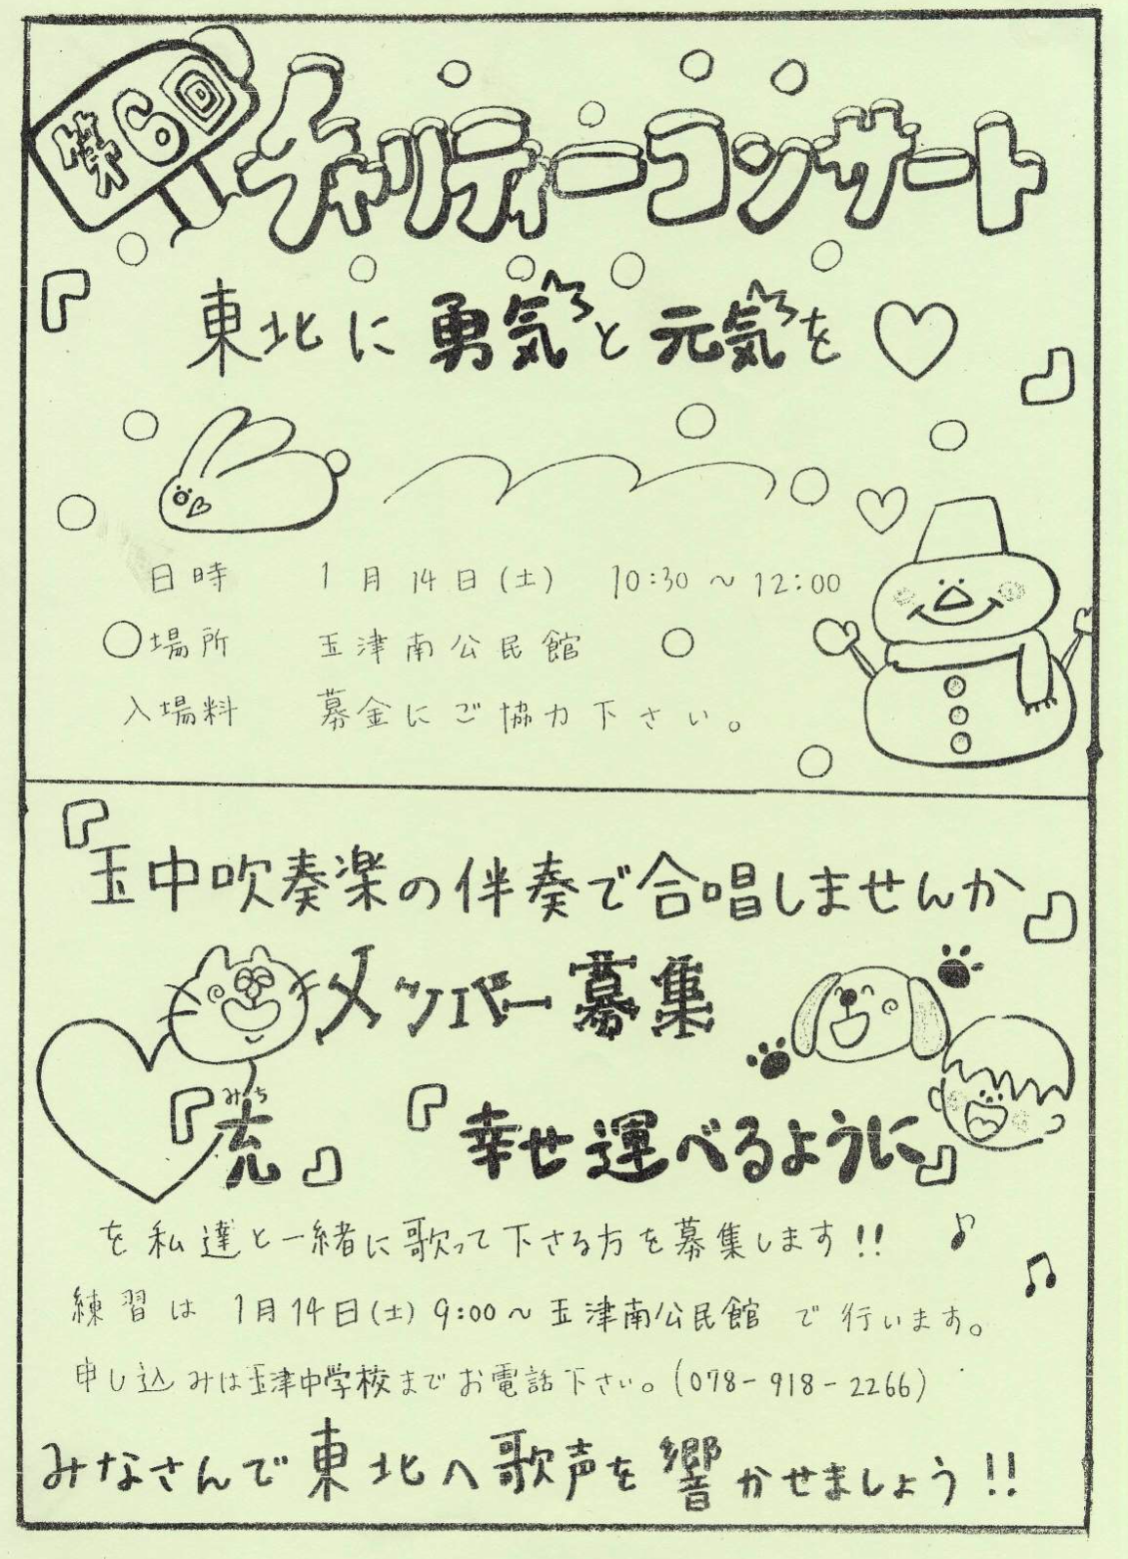 第6回
チャリティーコンサート
『東北に勇気と元気を♡』
日時 1月14日(土) 10:30～12:00
場所 玉津南公民館
入場料 募金にご協力下さい。
『玉中吹奏楽の伴奏で合唱しませんか』
メンバー募集
みち
『充』 『幸せ運べるように』
を私達と一緒に歌って下さる方を募集します!!
練習は 1月14日(土) 9:00～玉津南公民館 で行います。
申し込みは玉津中学校までお電話下さい。(078-918-2266)
みなさんで東北へ歌声を響かせましょう!!